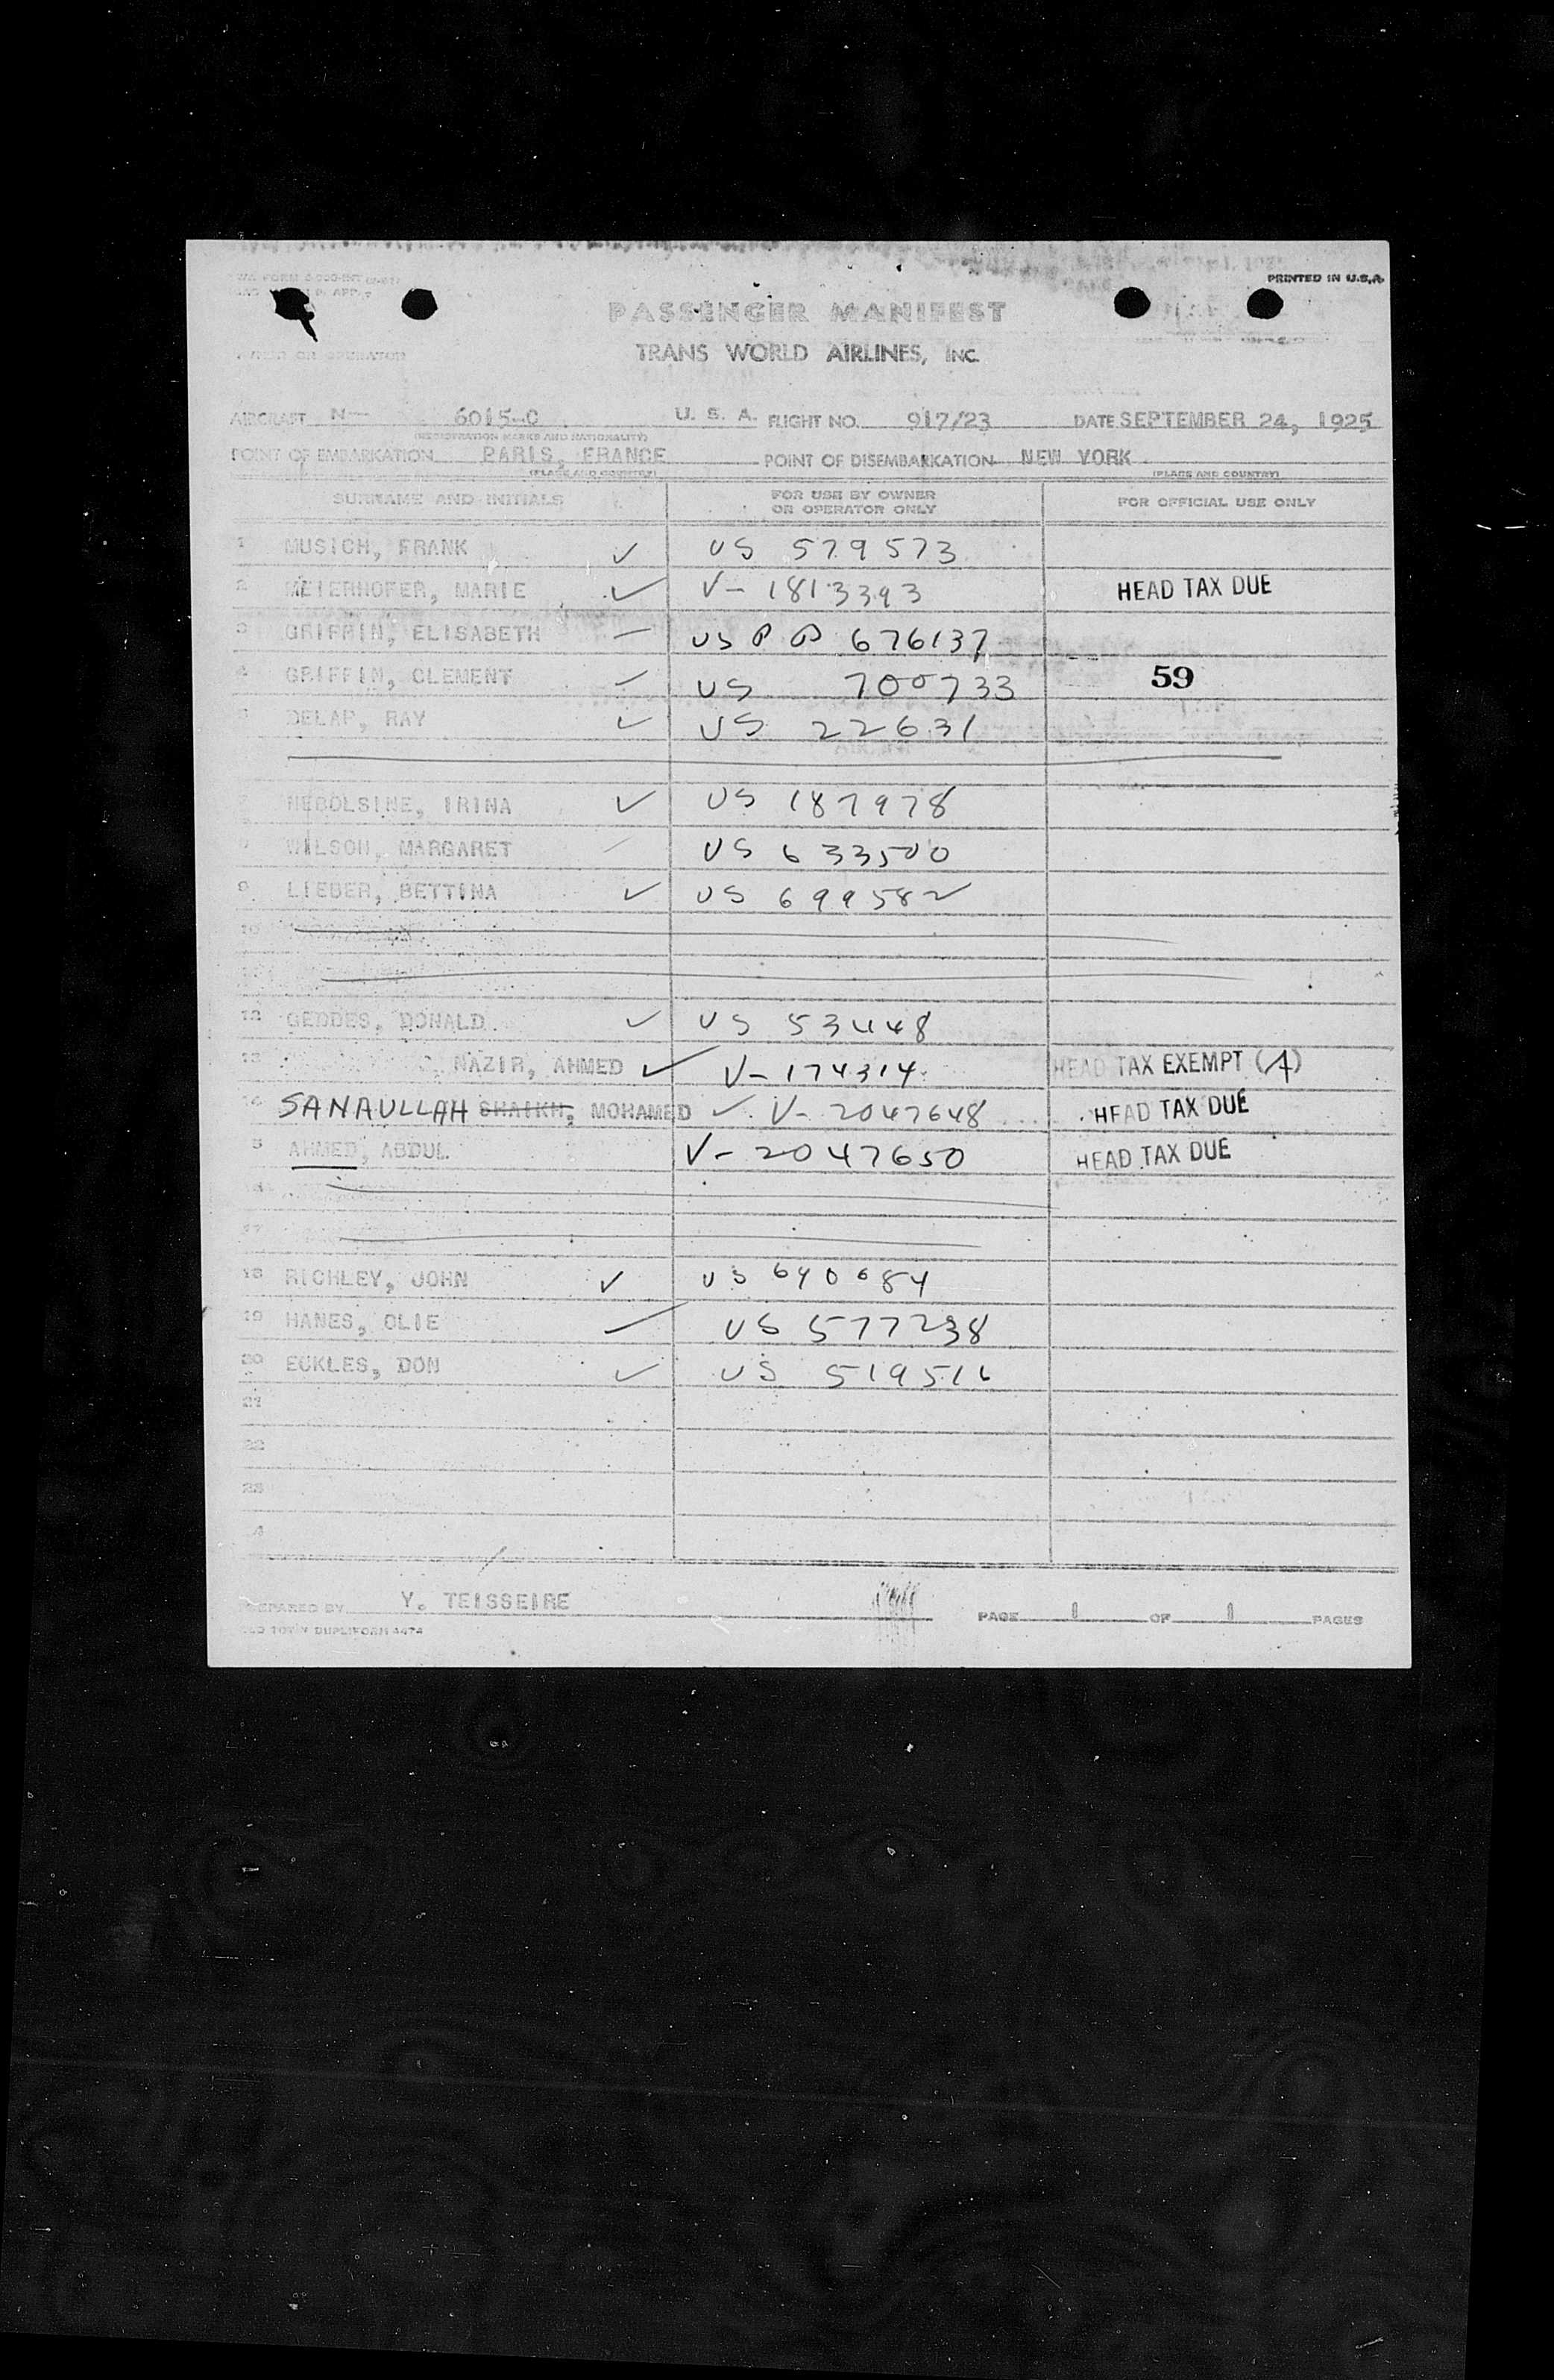 PRINTED IN U.S.A.
PASSENGER MANIFEST
TRANS WORLD AIRLINES, INC.
OWNER OR OPERATOR
AIRCRAFT N— 6015-C U. S. A. FLIGHT NO. 917/23 DATE SEPTEMBER 24, 1925
(REGISTRATION MARKS AND NATIONALITY)
POINT OF EMBARKATION PARIS, FRANCE POINT OF DISEMBARKATION NEW YORK
(PLACE AND COUNTRY) (PLACE AND COUNTRY)
SURNAME AND INITIALS FOR USE BY OWNER OR OPERATOR ONLY FOR OFFICIAL USE ONLY
1 MUSICH, FRANK ✓ US 579573
2 MEIERHOFER, MARIE ✓ V- 1813393 HEAD TAX DUE
3 GRIFFIN, ELISABETH US PP 676137
4 GRIFFIN, CLEMENT US 700733 59
5 DELAP, RAY ✓ US 22631
NEBOLSINE, IRINA ✓ US 187978
WILSON, MARGARET US 633500
9 LIEBER, BETTINA ✓ US 699582
10
12 GEDDES, DONALD ✓ US 53448
13 NAZIR, AHMED ✓ V- 174314 HEAD TAX EXEMPT (A)
14 SANAULLAH SHAIKH, MOHAMED ✓ V- 2047648 HEAD TAX DUE
5 AHMED, ABDUL V- 2047650 HEAD TAX DUE
17
18 RICHLEY, JOHN ✓ US 640684
19 HANES, OLIE US 577238
20 ECKLES, DON ✓ US 519516
21
22
23
4
PREPARED BY Y. TEISSEIRE PAGE 1 OF 1 PAGES
OLD TOWN DUPLIFORM 4474